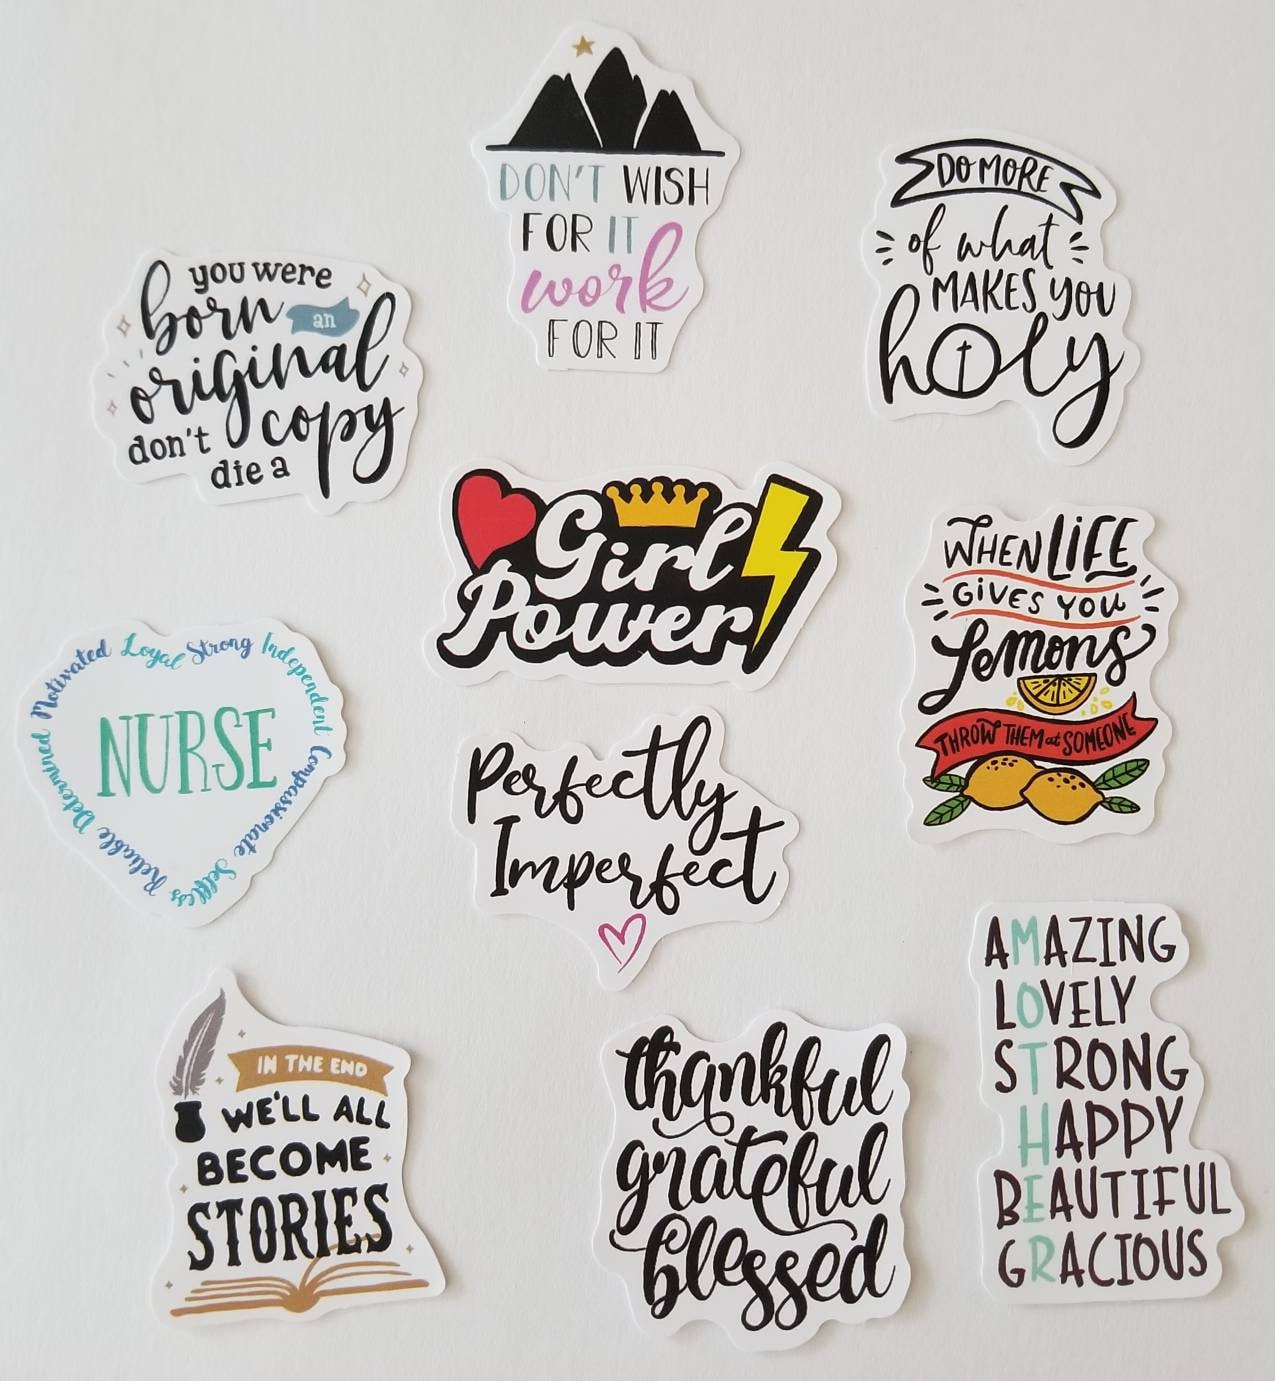 DON'T WISH
FOR IT
work
FOR IT
DO MORE
of what
MAKES YOU
holy
you were
born an
original
don't copy
die a
Girl
Power
WHEN LIFE
GIVES YOU
Lemons
THROW THEM at SOMEONE
NURSE
Motivated Loyal Strong Independent Compassionate Selfless Reliable Determined
Perfectly
Imperfect
AMAZING
LOVELY
STRONG
HAPPY
BEAUTIFUL
GRACIOUS
IN THE END
WE'LL ALL
BECOME
STORIES
thankful
grateful
blessed